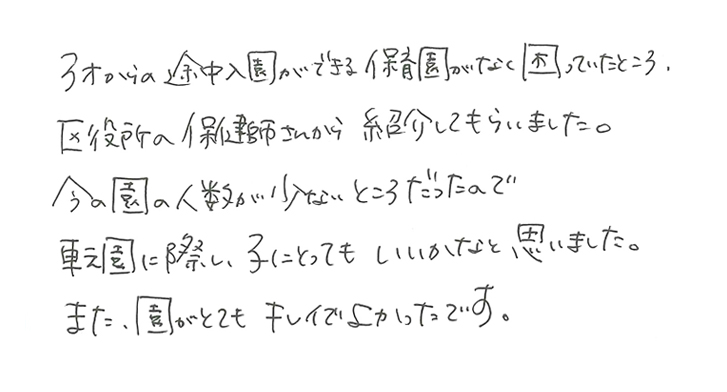 3才からの途中入園ができる保育園がなく困っていたところ、
区役所の保健師さんから紹介してもらいました。
今の園の人数が少ないところだったので
転園に際し、子にとってもいいかなと思いました。
また、園がとてもキレイでよかったです。